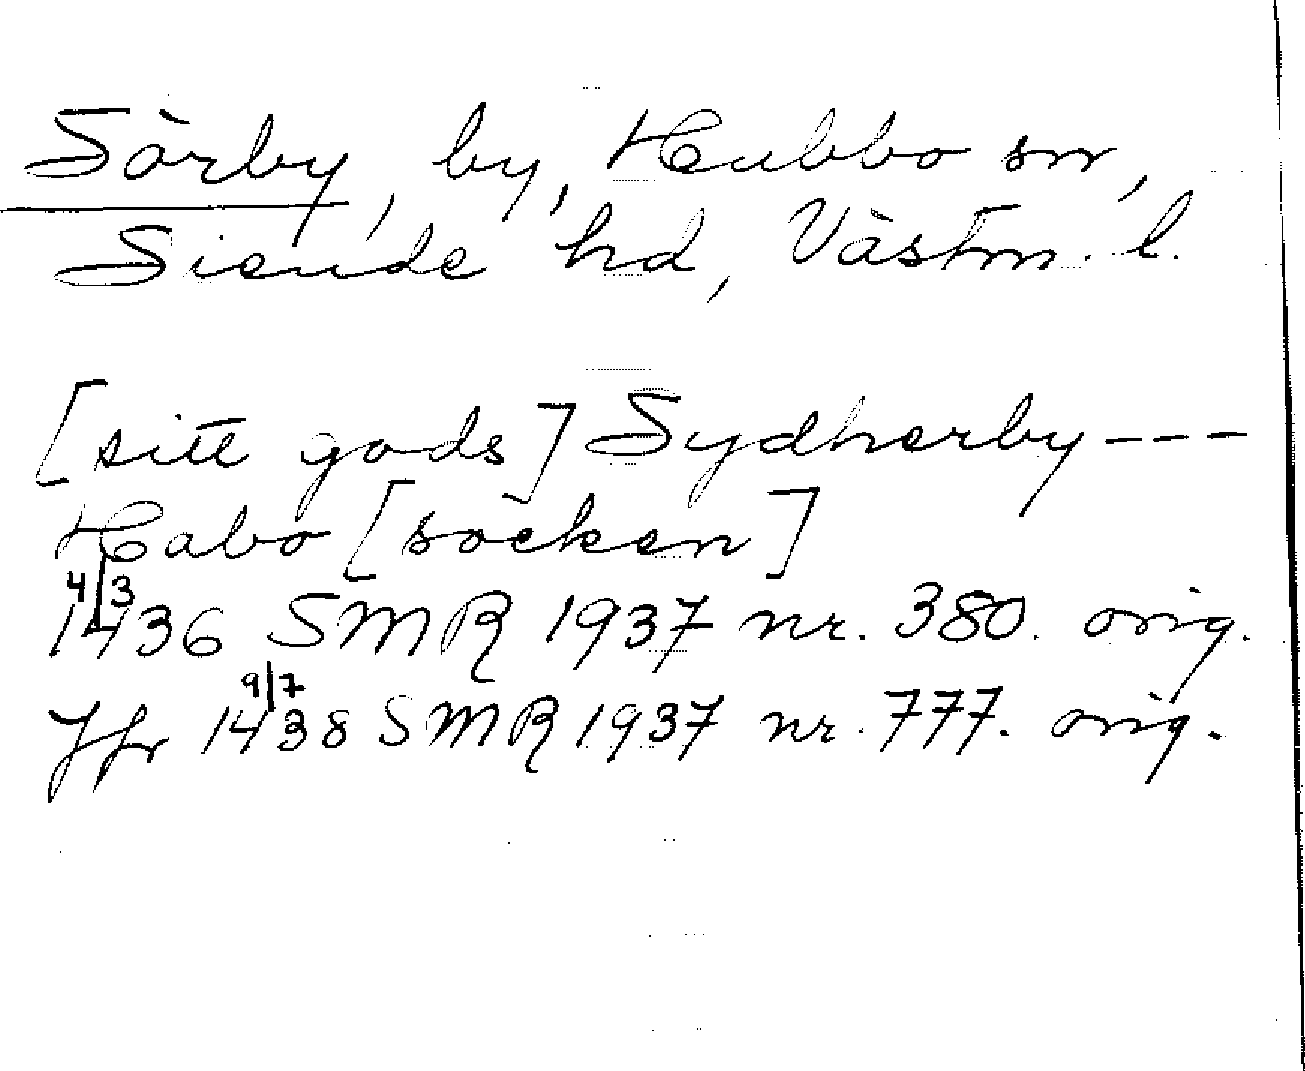 Sörby, by, Hubbo sn,
Siende hd, Västm. l.
[sitt gods] Sydherby---
Habo [söcken]
4/3 1436 SMR 1937 nr. 380. orig.
Jfr 9/7 1438 SMR 1937 nr. 777. orig.